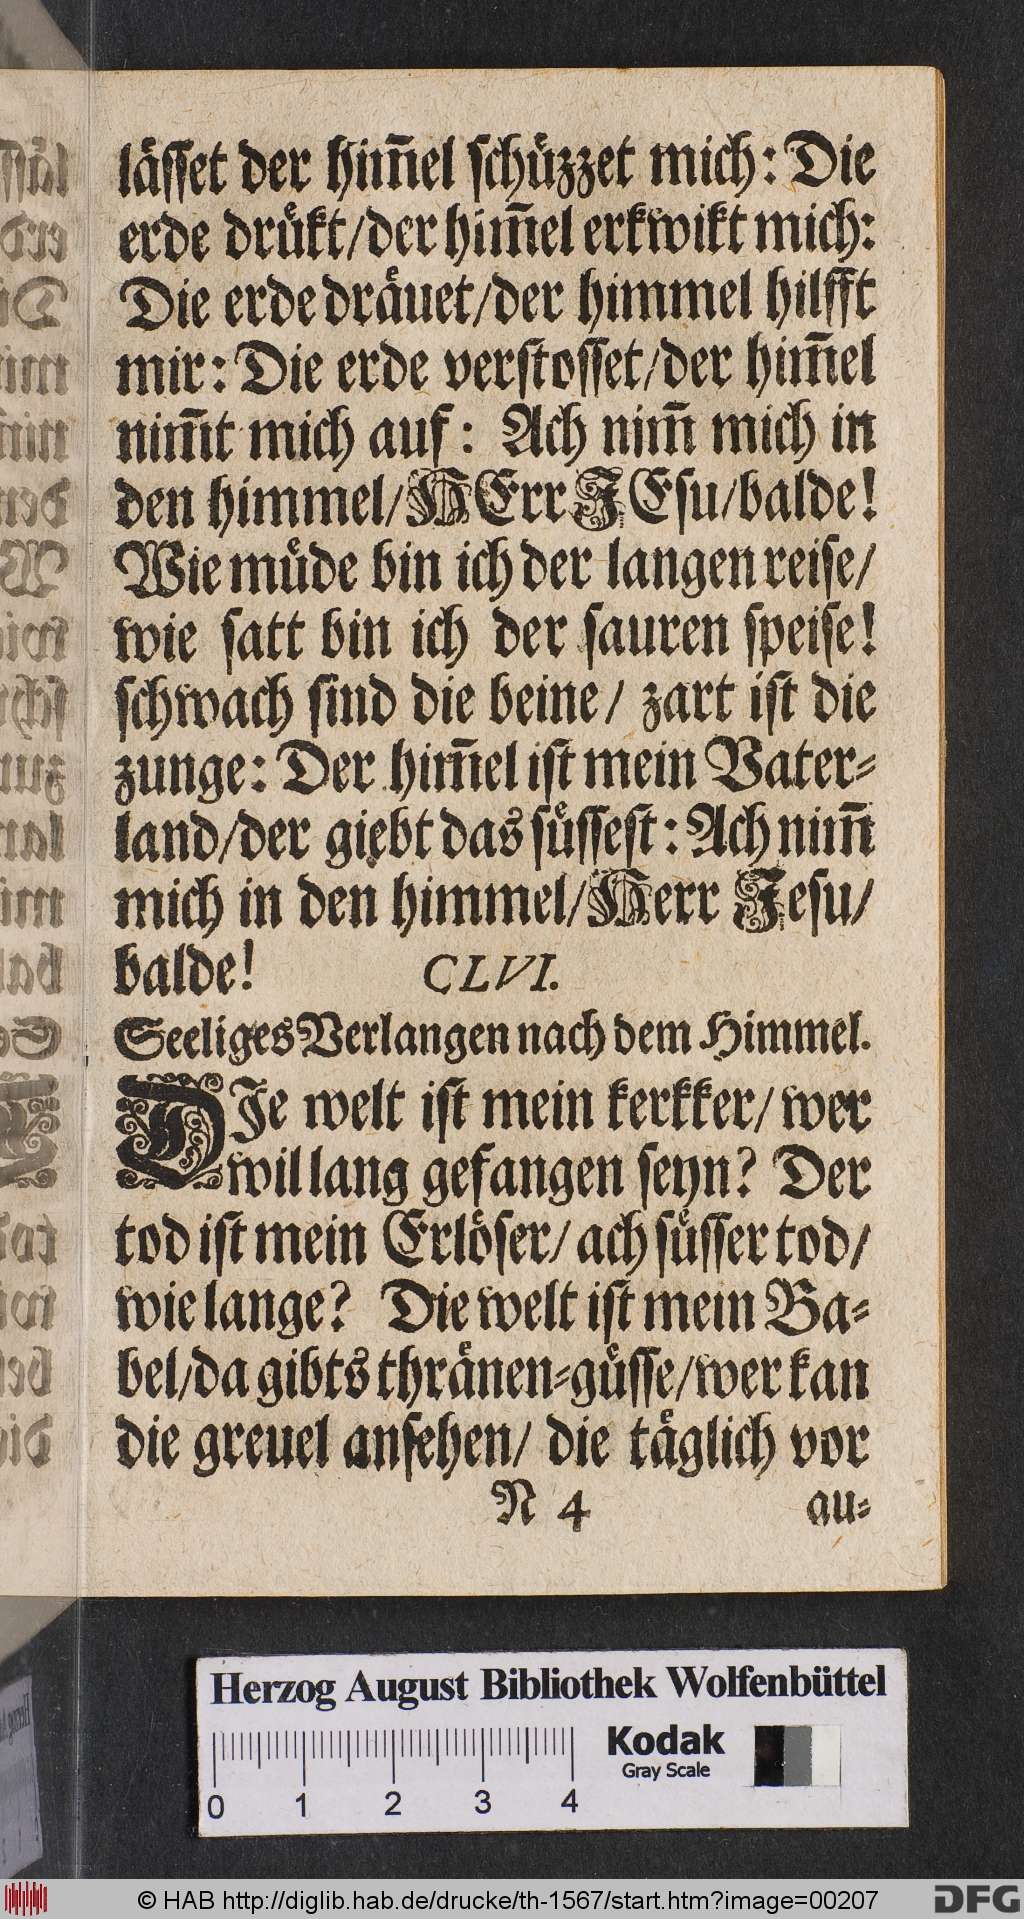 lässet der him̃el schüzzet mich: Die
erde drükt/der him̃el erkwikt mich:
Die erde dräuet/der himmel hilfft
mir: Die erde verstosset/der him̃el
nim̃t mich auf: Ach nim̃ mich in
den himmel/HErr JEsu/balde!
Wie müde bin ich der langen reise/
wie satt bin ich der sauren speise!
schwach sind die beine/ zart ist die
zunge: Der him̃el ist mein Vater-
land/der giebt das süssest: Ach nim̃
mich in den himmel/Herr Jesu/
balde! CLVI.
Seeliges Verlangen nach dem Himmel.
DJe welt ist mein kerkker/wer
wil lang gefangen seyn? Der
tod ist mein Erlöser/ach süsser tod/
wie lange? Die welt ist mein Ba-
bel/da gibts thränen-güsse/wer kan
die greuel ansehen/ die täglich vor
N 4 au-
Herzog August Bibliothek Wolfenbüttel
Kodak
Gray Scale
0 1 2 3 4
© HAB http://diglib.hab.de/drucke/th-1567/start.htm?image=00207
DFG